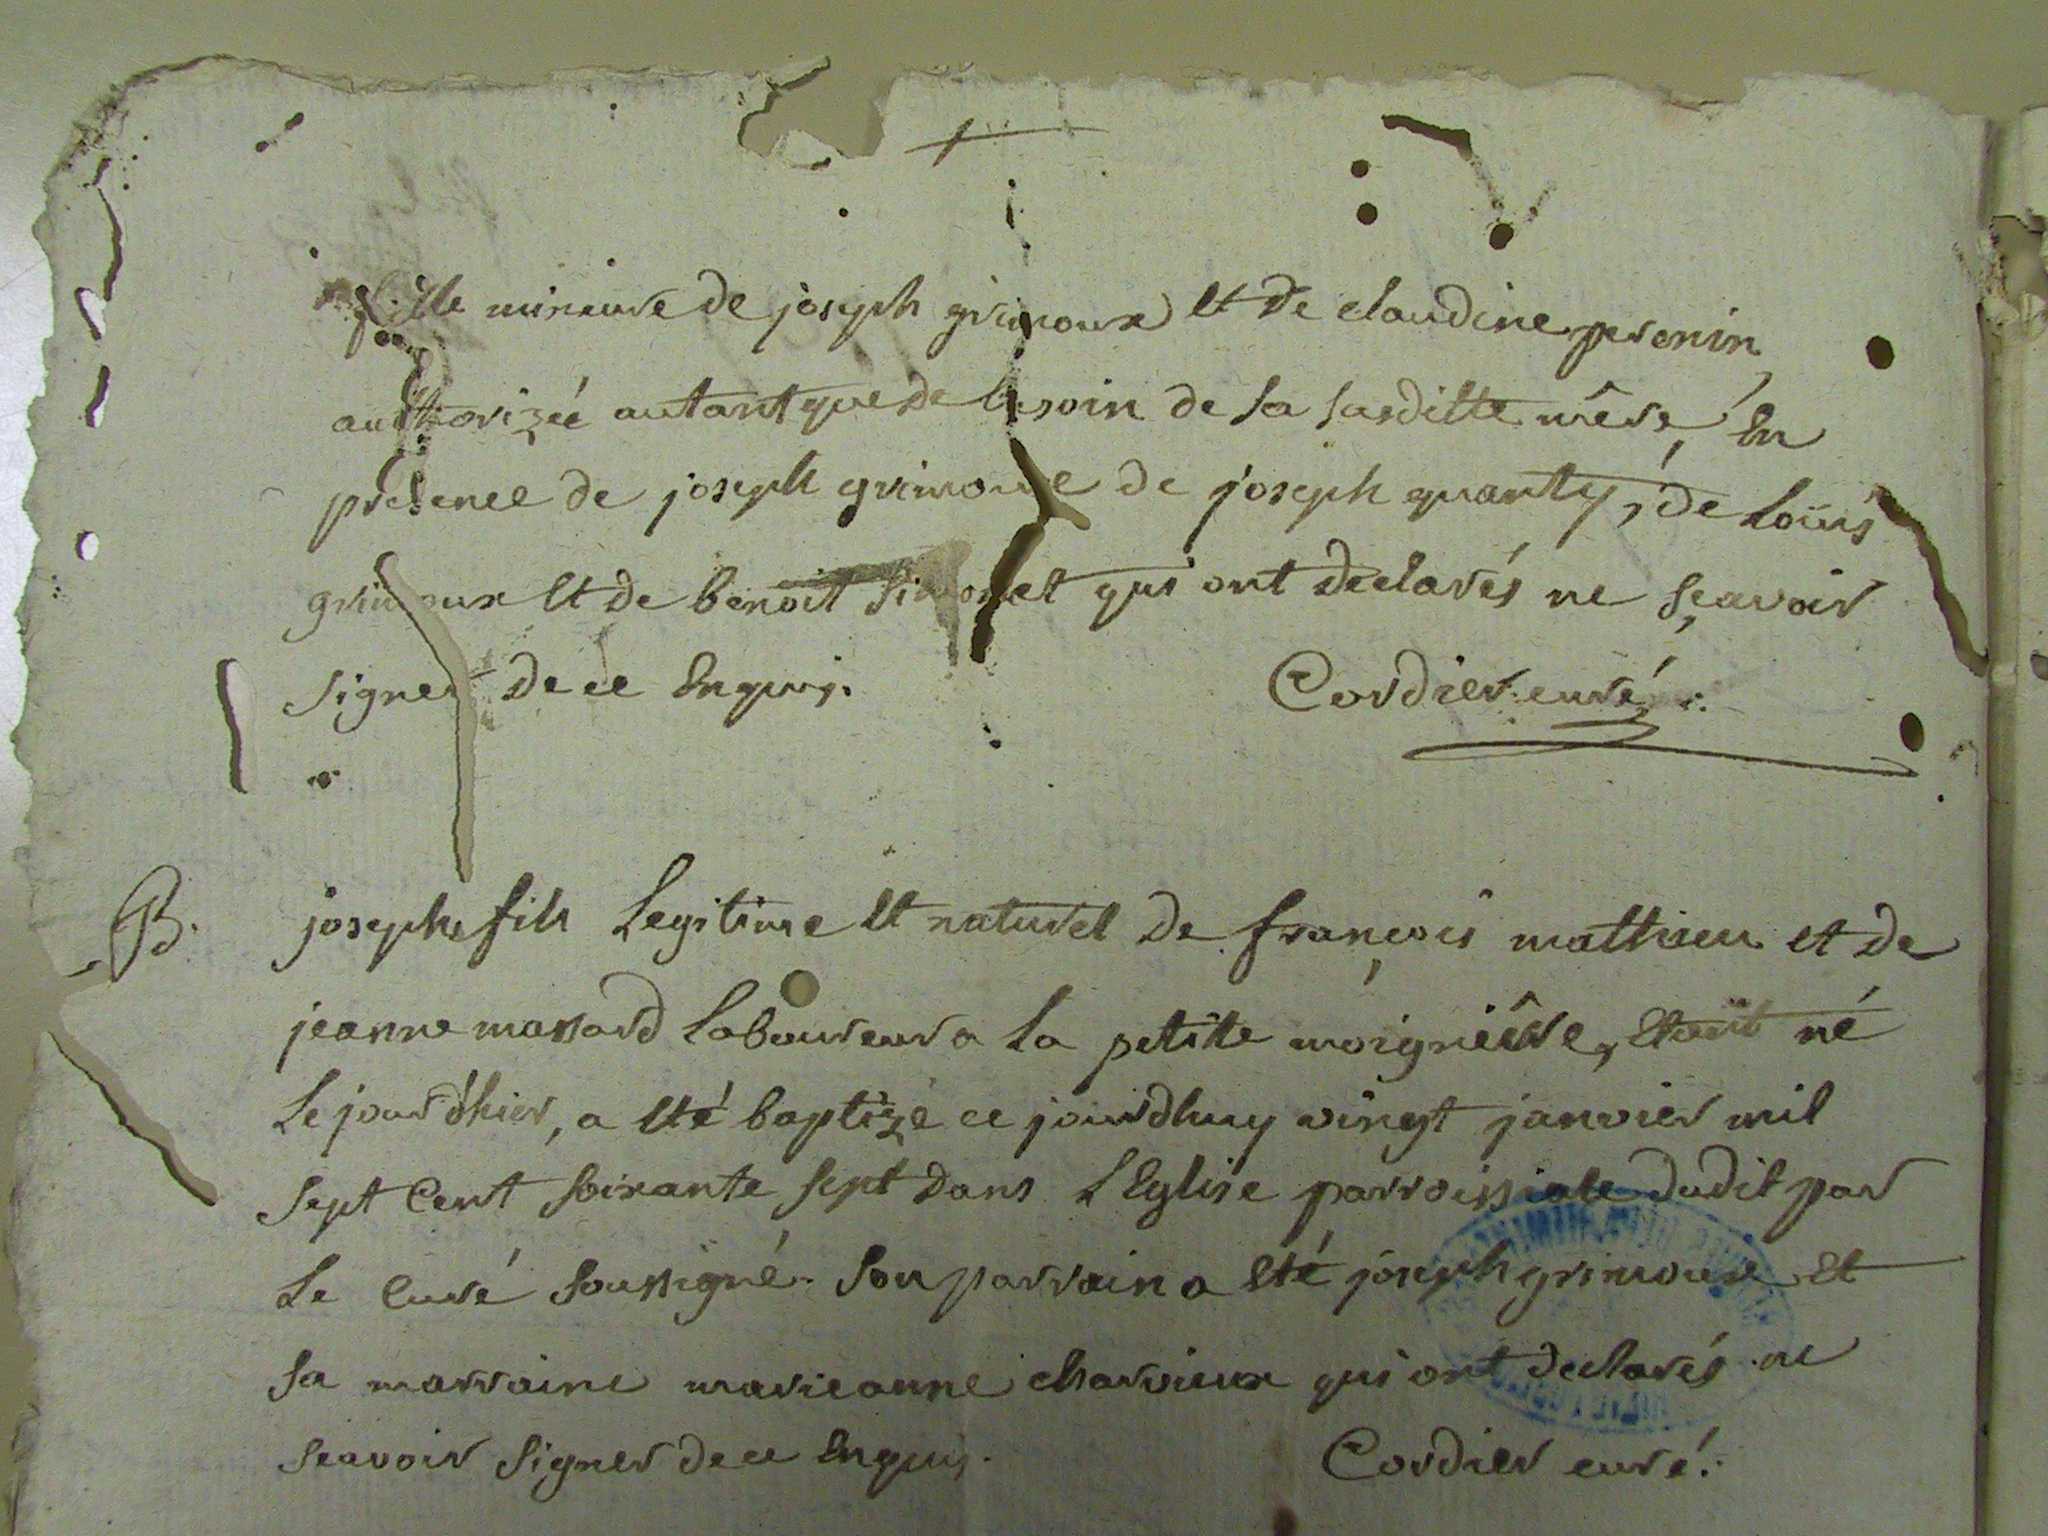 fille mineure de joseph grimoux et de claudine peronin
authorizée autant que de besoin de sa susditte mêre, En
présence de joseph grimoux de joseph quanty, de Loüis
grimoux et de benoit simonet qui ont declarés ne sçavoir
signer de ce Enquis.
Cordier curé
B.
joseph fils Legitime et naturel de françois mathieu et de
jeanne massard Laboureur a La petite moigniêre, Etait né
Le jour d'hier, a Eté baptizé ce jourdhuy vingt janvier mil
sept Cent soixante sept dans L'Eglise parroissiale dudit par
Le Curé soussigné. Son parrain a Eté joseph grimoux et
sa marraine marieanne charvieux qui ont declarés ne
sçavoir signer de ce Enquis.
Cordier curé.